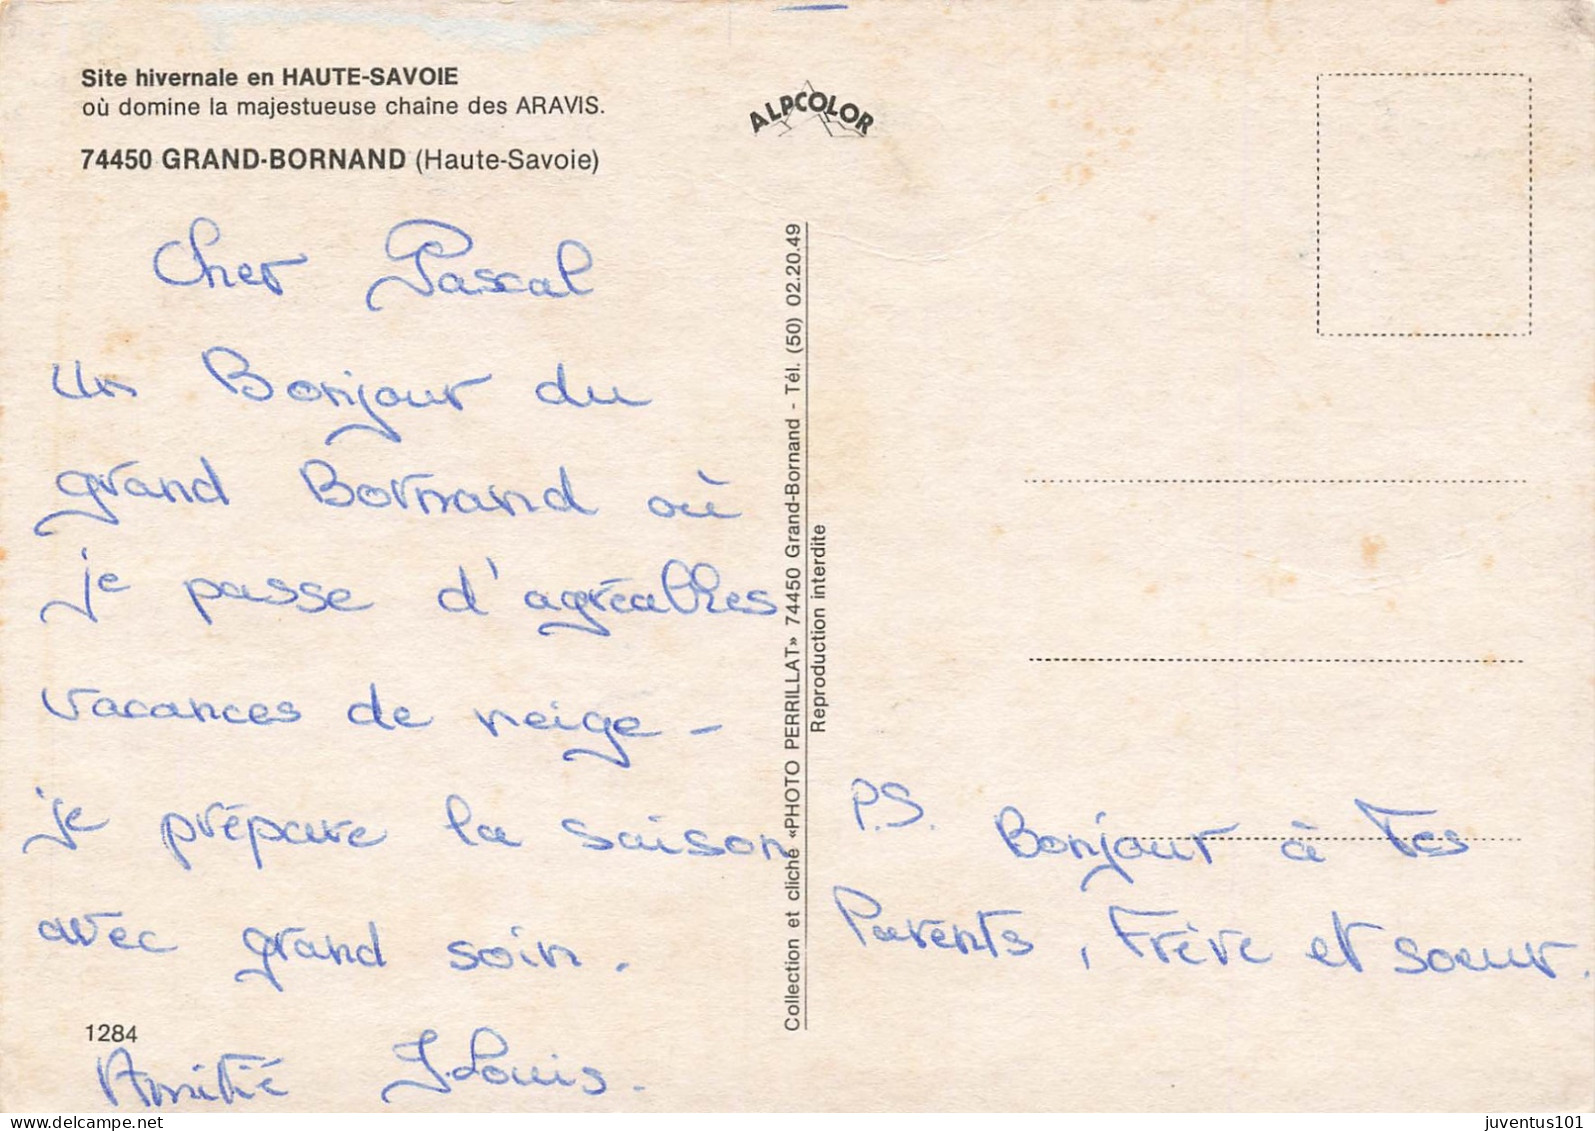 Site hivernale en HAUTE-SAVOIE
où domine la majestueuse chaîne des ARAVIS.
74450 GRAND-BORNAND (Haute-Savoie)
ALPCOLOR
Cher Pascal
Un Bonjour du
grand Bornand où
je passe d'agréables
vacances de neige -
je prépare la saison
avec grand soin.
1284
Amitié J.Louis.
Collection et cliché «PHOTO PERRILLAT» 74450 Grand-Bornand - Tél. (50) 02.20.49
Reproduction interdite
P.S. Bonjour à Tes
Parents, Frère et soeur.
juventus101